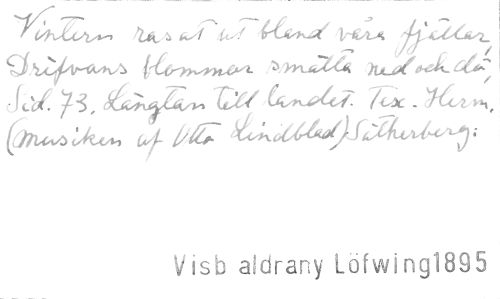 Vintern rasat ut bland våra fjällar,
Drifvans blommor smälta ned och dö,
Sid. 73. Längtan till landet. Tex. Herm.
(musiken af Otto Lindblad) Sätherberg.
Visb aldrany Löfwing1895